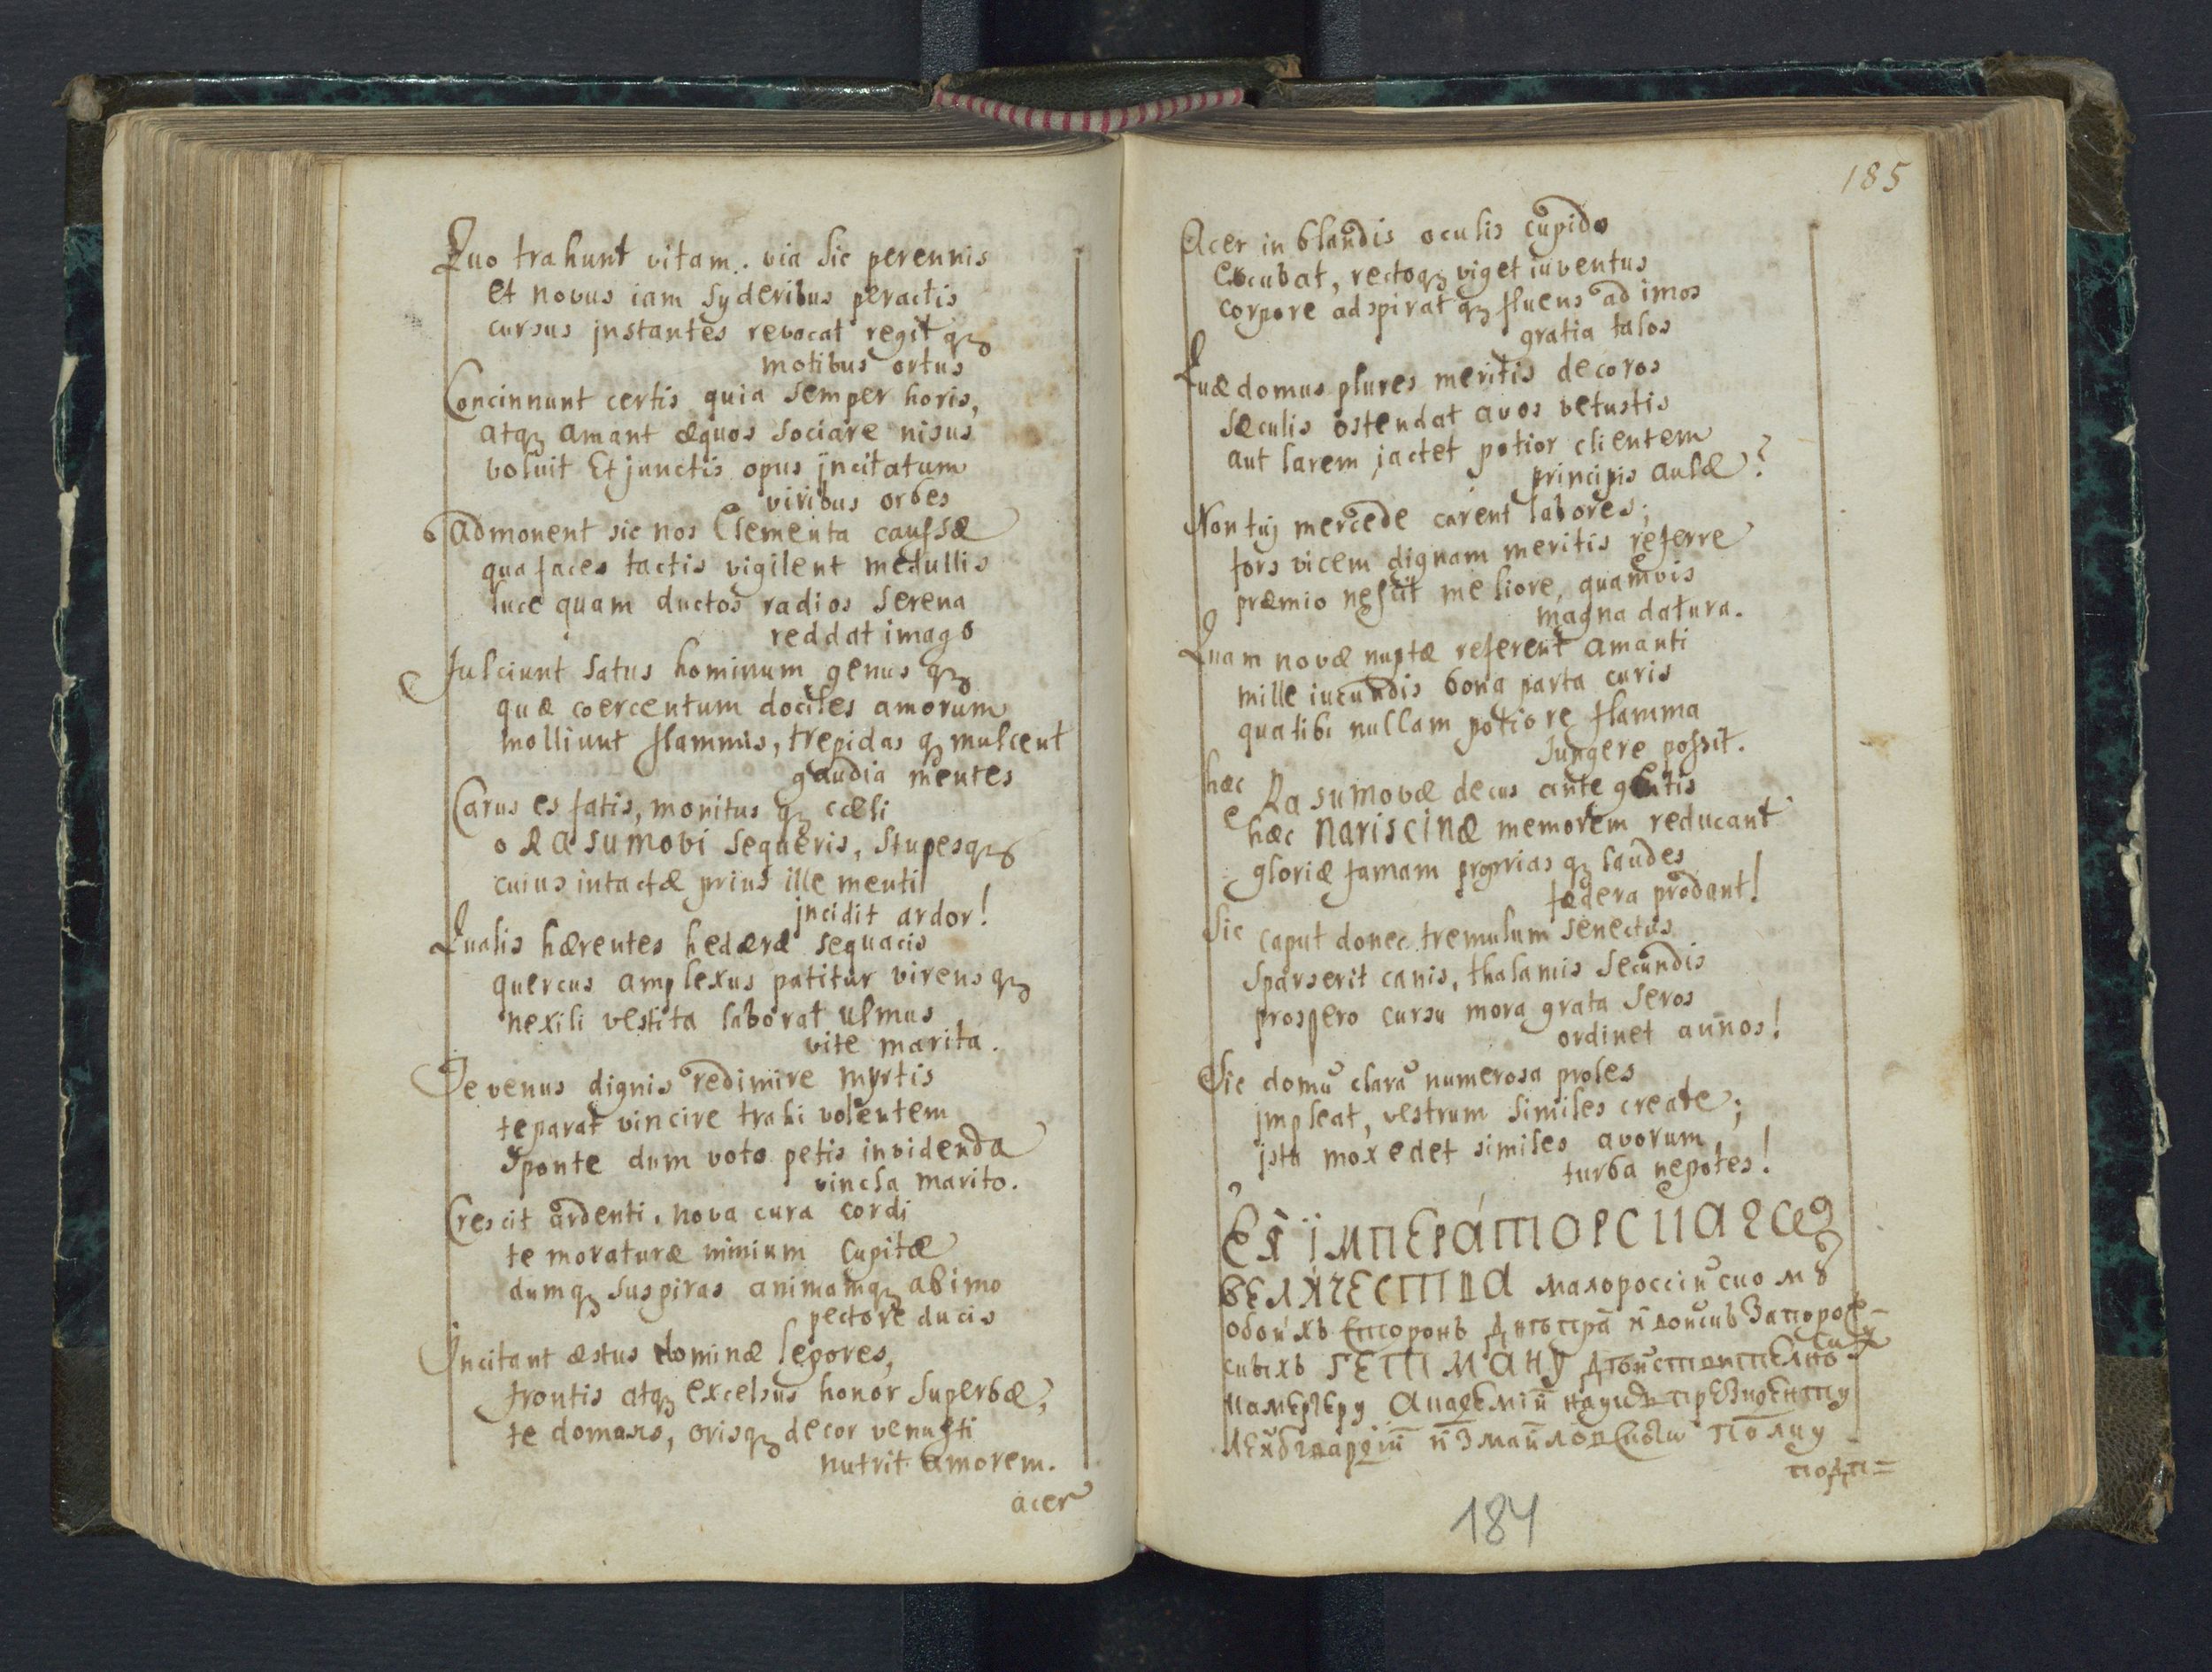 Quo trahunt vitam. via sic perennis
et novus iam syderibus peractis
cursus jnstantes revocat regitqȝ
motibus ortus
Concinnunt certis quia semper horis,
atqȝ amant æquos sociare nisus
voluit Et junctis opus jncitatum
viribus orbes
admonent sic nos Elementa caussæ
qua faces tactis vigilent medullis
luce quam ductos radios serena
reddat imago
fulciunt satus hominum genusqȝ
quæ coercentum dociles amorum
molliunt flammis, trepidasqȝ mulcent
gaudia mentes
Carus es fatis, monitusqȝ cæli
o RaSumovi sequeris, stupesqȝ
cuius intactæ prius ille menti
jncidit ardor!
Qualis hærentes hederæ sequacis
quercus amplexus patitur virensqȝ
nexili vestita laborat ulmus
vite marita.
Te venus dignis redimire myrtis
te parat vincire trahi volentem
sponte dum voto petis invidenda
vincla marito.
Crescit ardenti, nova cura cordi
te moraturæ nimium cupitæ
dumqȝ suspiras animamqȝ ab imo
pectore ducis
Jncitant æstus dominæ lepores,
frontis atqȝ excelsus honor superbæ,
te domans, orisqȝ decor venusti
nutrit amorem.
acer
185
Acer in blandis oculis cupido
excubat, rectoqȝ viget iuventus
corpore adspiratqȝ fluens ad imos
gratia talos
Quæ domus plures meritis decoros
sæculis ostendat avos vetustis
aut larem jactet potior clientem
principis aulæ?
Non tuj mercede carent labores;
fors vicem dignam meritis referre
præmio nescit meliore, quamvis
magna datura.
Quam novæ nuptæ referent amanti
mille iucundis bona parta curis
qua tibi nullam potiore flamma
Jungere possit.
hæc RaSumovæ decus ante gentis
hæc NariScinæ memorem reducant
gloriæ famam propriasqȝ laudes
fædera prodant!
Sic caput donec tremulum senectus
sparserit canis, thalamis secundis
prospero cursu mora grata seros
ordinet annos!
Sic domū clarā numerosa proles
jmpleat, vestrum similes create;
jsta mox edet similes avorum
turba nepotes!
Ея їмператорскагѡ
величества малороссїйскомꙋ
обойхъ сторонъ Днѣпра и войскъ Запорож-
скихъ ГЕТМАНУ дѣйствителномꙋ
камергеру Академїи наукъ президенту
Лейбгвардїи Измайловскагѡ полку
подп=
184